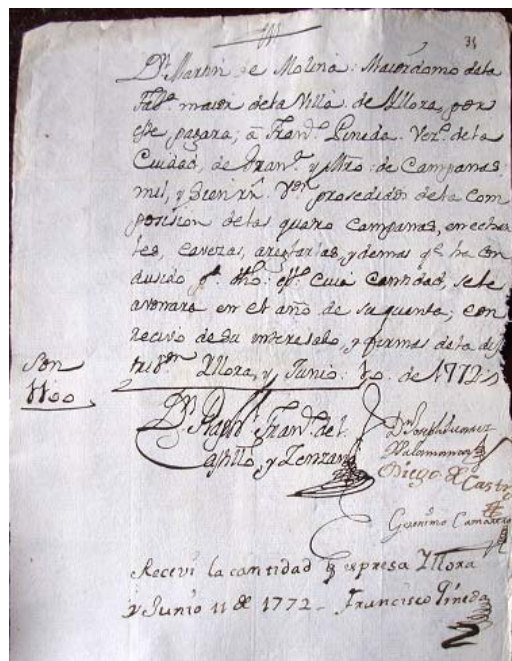 31
Dn. Martin de Molina: Maiordomo dela
Fabca. maior dela Villa de Yllora, por
este pagara, à Franco. Pineda. Vezo. dela
Ciudad, de Grana. y Mtro: de Campanas
mil, y Zien rrs. Von. prosedidos dela Com
posision delas quatro Campanas, en echar
les, Cavezas, y demas qe. ha con
dusido pa. dho. cuia Cantidad, sele
avonara en el año de su quenta; con
recivo de Su interesado, y firmas dela dis
trivon. Yllora, y Junio: 10. de 1772
Son
1100
Dn. Raphl. Frano. del
Castillo, y
Dn. Joseph
Salamanca
Diego de Castro
Geronimo Camarero
Recevi la cantidad q espresa Yllora
y Junio 11 de 1772 - Francisco Pineda